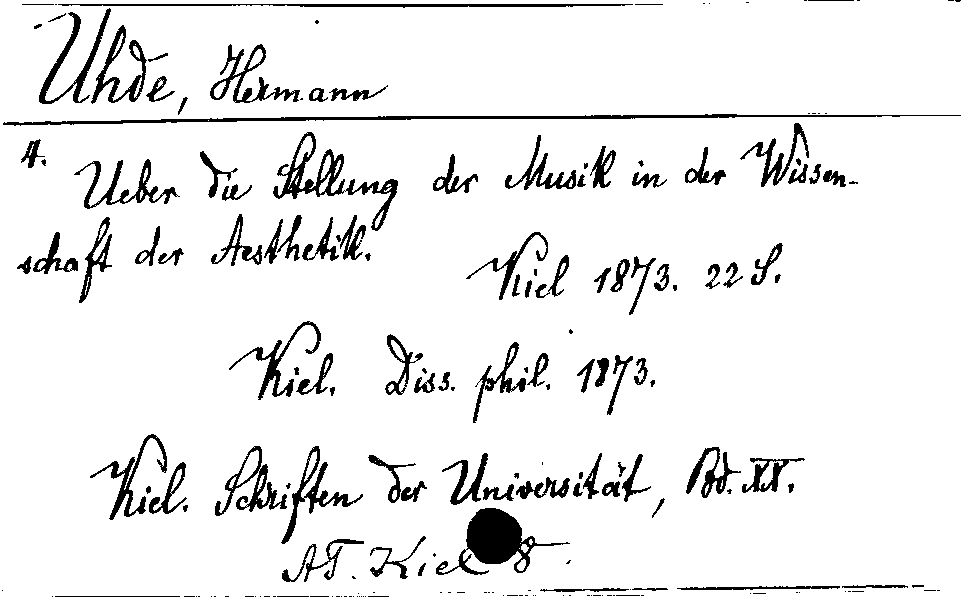 Uhde, Hermann
4.
Ueber die Stellung der Musik in der Wissen-
schaft der Aesthetik.
Kiel 1873. 22 S.
Kiel. Diss. phil. 1873.
Kiel. Schriften der Universität, Bd. XX.
AT. Kiel 8.